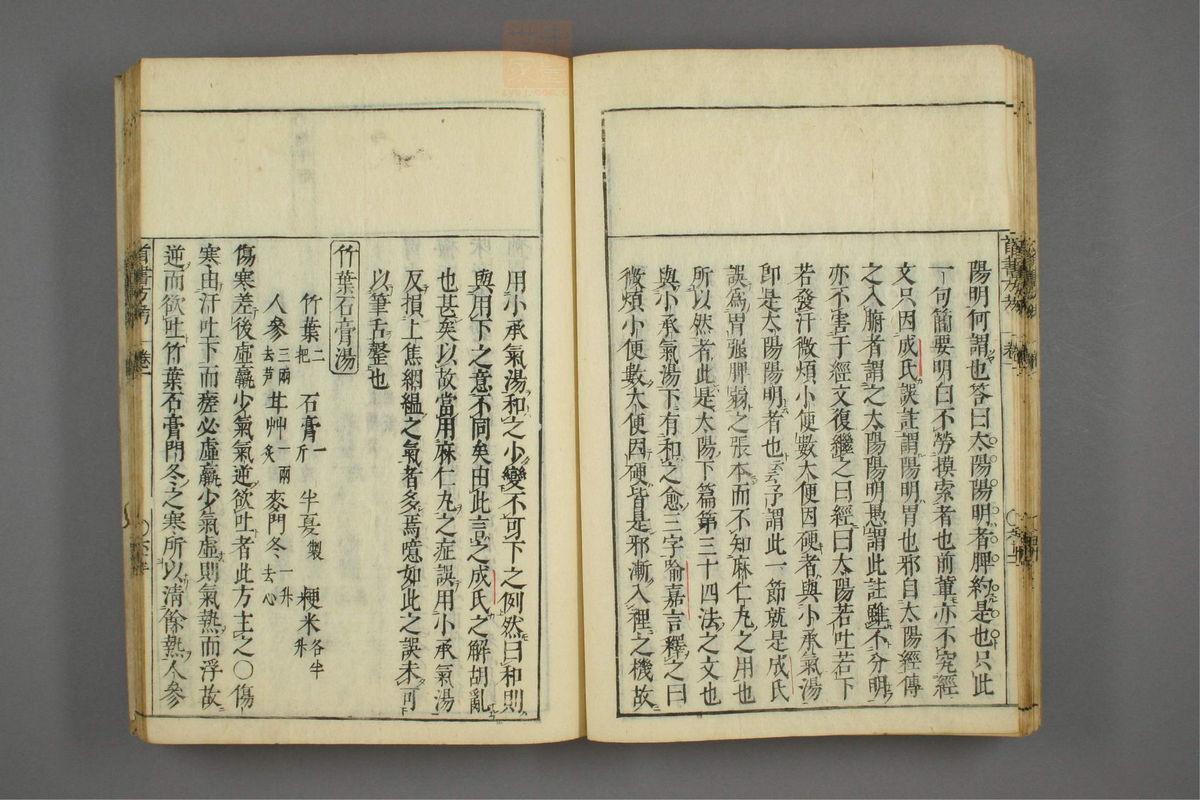 陽明何謂也答曰太陽陽明者脾約是也只此
一句簡要明白不勞摸索者也前輩亦不究經
文只因成氏誤註謂陽明胃也邪自太陽經傳
之入腑者謂之太陽陽明愚謂此註雖不分明
亦不害于經文復繼之曰經曰太陽若吐若下
若發汗微煩小便數大便因硬者與小承氣湯
即是太陽陽明者也云云予謂此一節就是成氏
誤為胃强脾弱之張本而不知麻仁丸之用也
所以然者此是太陽下篇第三十四法之文也
與小承氣湯下有和之愈三字喻嘉言釋之曰
微煩小便數大便因硬皆是邪漸入裡之機故
用小承氣湯和之少變不可下之例然曰和則
與用下之意不同矣由此言之成氏之解胡亂
也甚矣以故當用麻仁丸之症誤用小承氣湯
反損上焦絪縕之氣者多焉噫如此之誤未可
以筆舌罄也
竹葉石膏湯
竹葉二把 石膏一斤 半夏製 粳米各半升
人參三兩去芦 甘艸一兩炙 麥門冬一升去心
傷寒差後虛羸少氣氣逆欲吐者此方主之○傷
寒由汗吐下而瘥必虛羸少氣虛則氣熱而浮故
逆而欲吐竹葉石膏門冬之寒所以清餘熱人參
首書方考 卷一